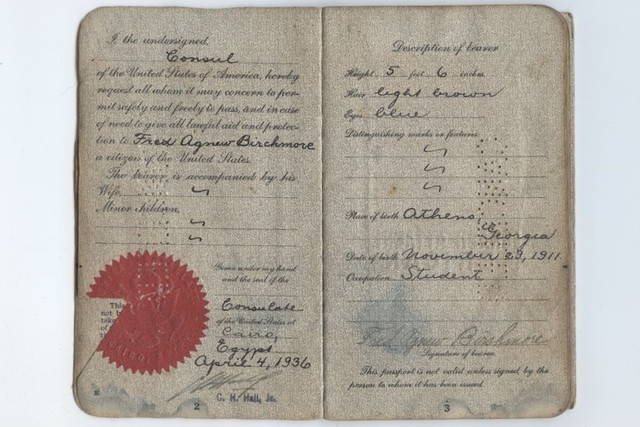 I, the undersigned,
Consul
of the United States of America, hereby
request all whom it may concern to per-
mit safely and freely to pass, and in case
of need to give all lawful aid and protec-
tion to Fred Agnew Birchmore
a citizen of the United States.
The bearer is accompanied by his
Wife,
Minor children,
Given under my hand
and the seal of the
Consulate
of the United States at
Cairo,
Egypt
April 4, 1936
This
not b
take
of
C. H. Hall, Jr.
2
Description of bearer
Height 5 feet 6 inches.
Hair light brown
Eyes blue
Distinguishing marks or features:
Place of birth Athens,
Georgia
Date of birth November 29, 1911.
Occupation Student
Fred Agnew Birchmore
Signature of bearer.
This passport is not valid unless signed by the
person to whom it has been issued.
3